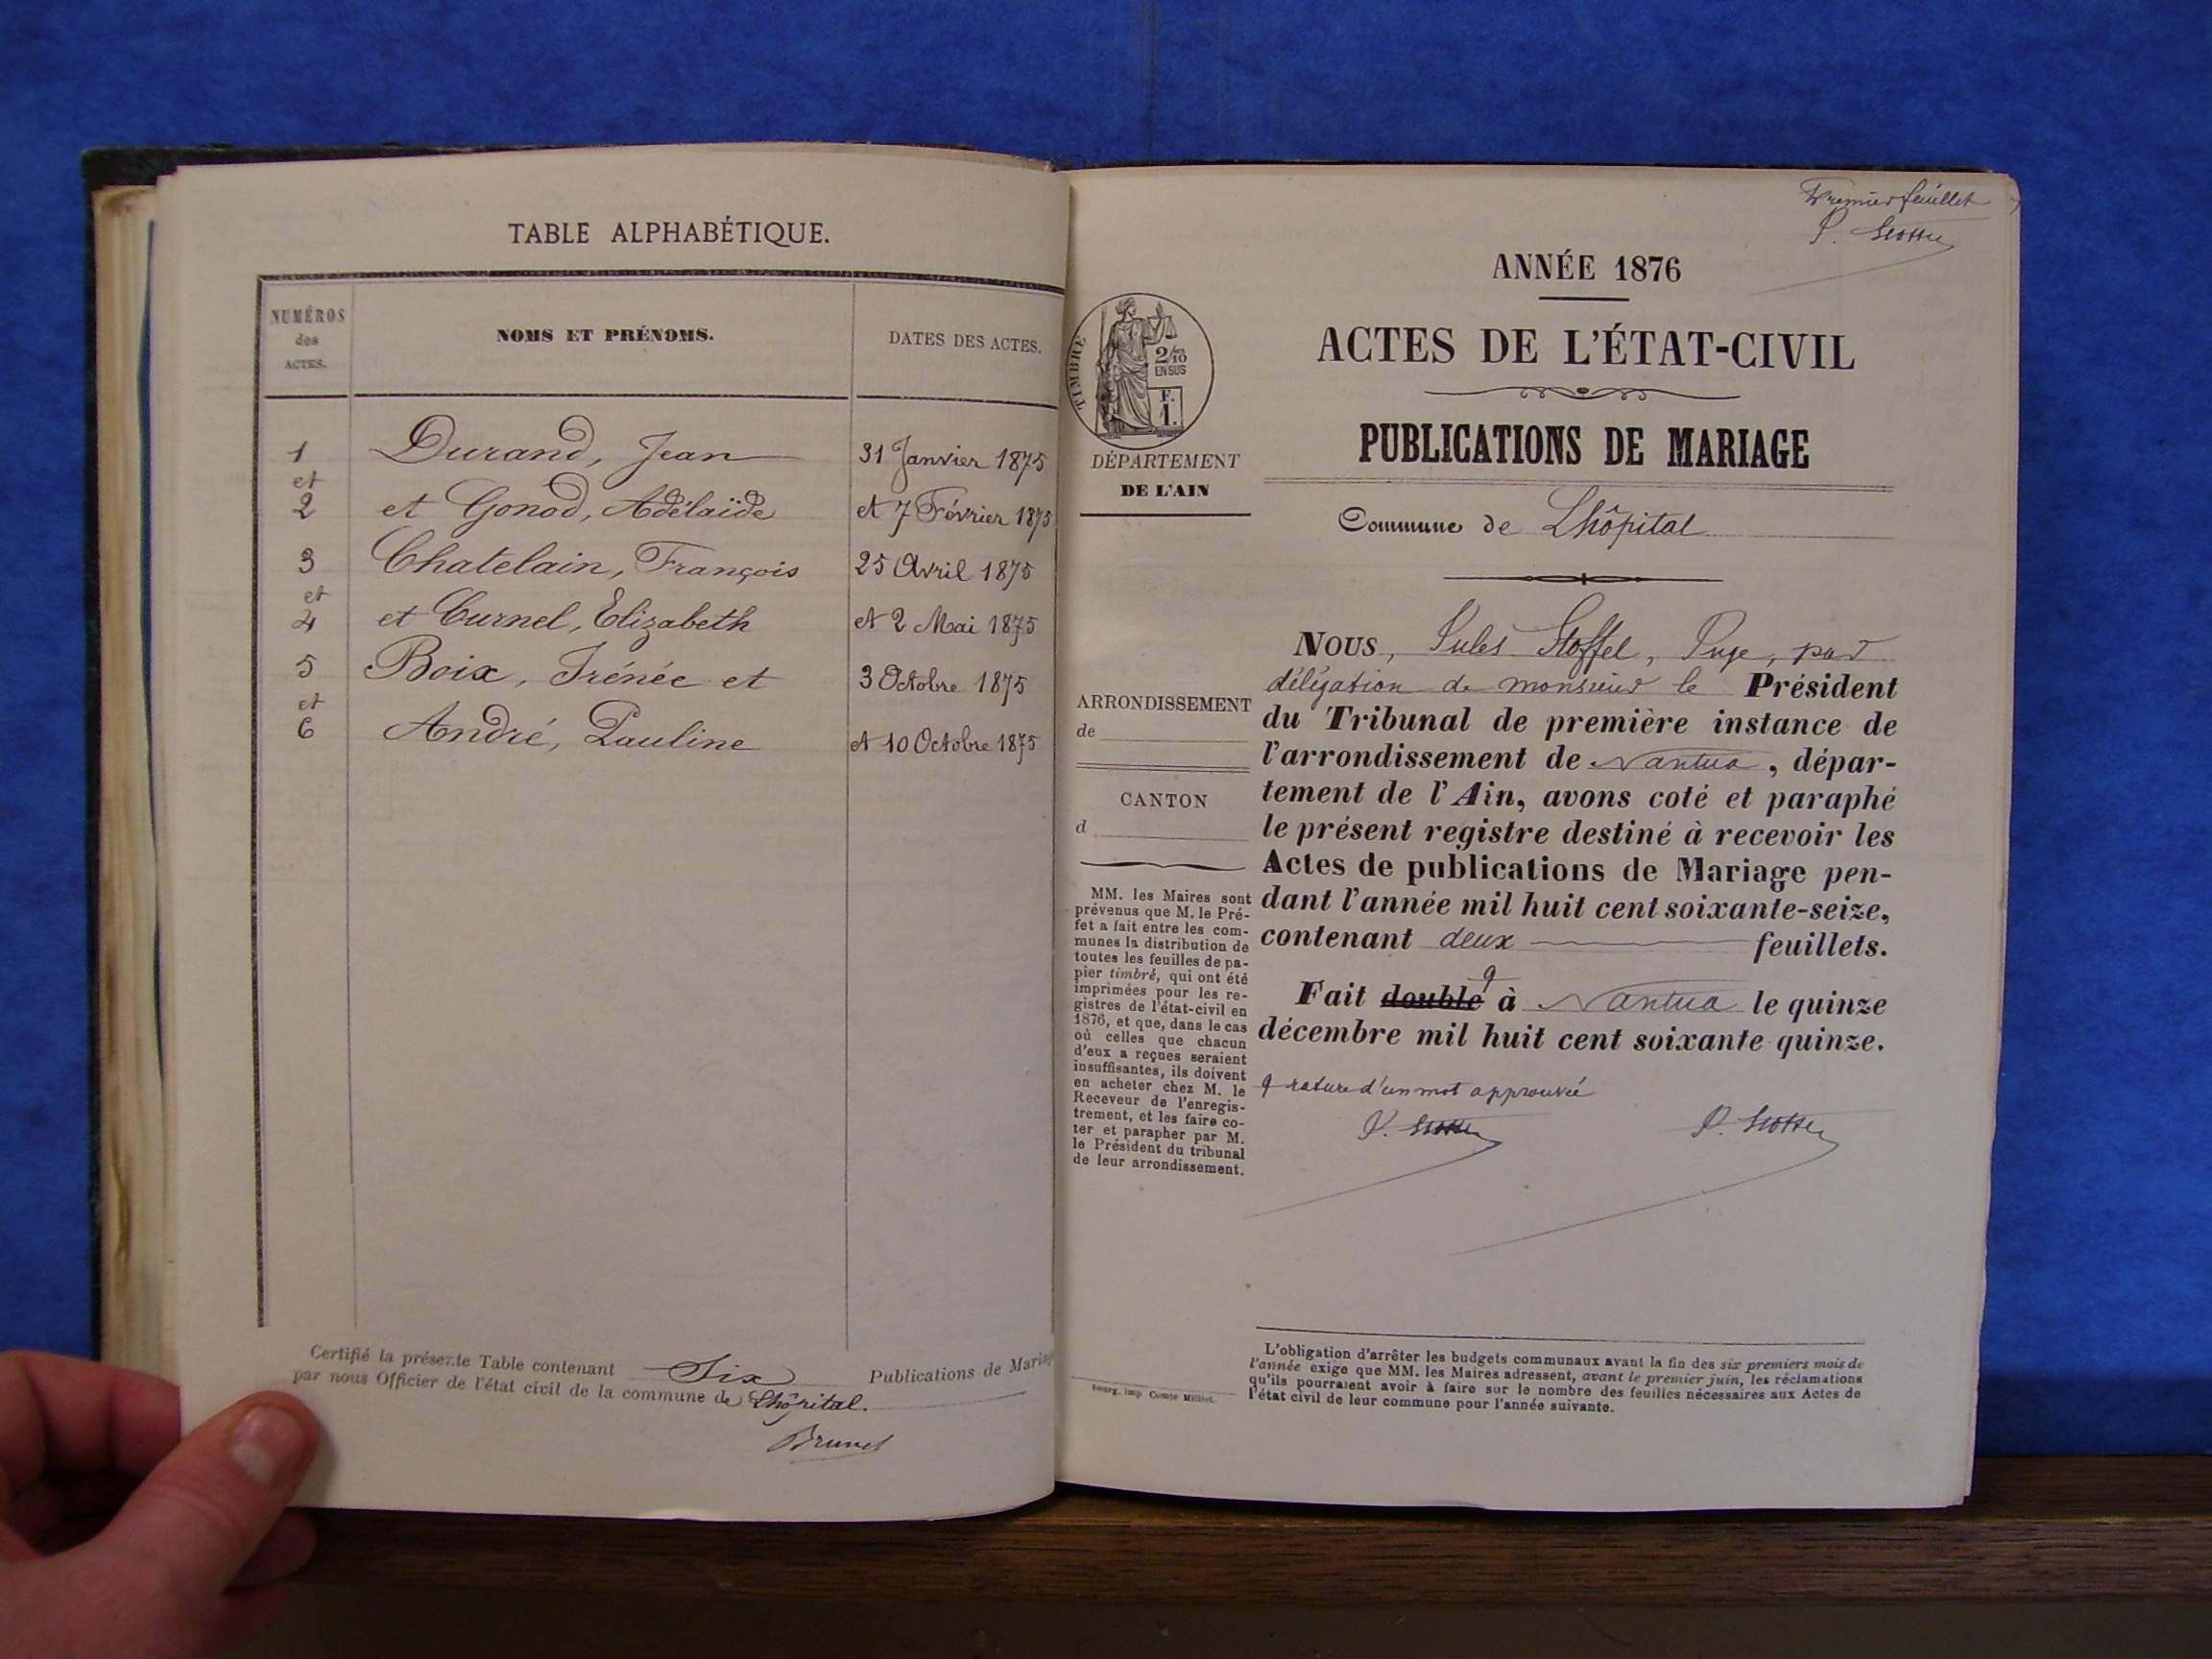 TABLE ALPHABÉTIQUE.
NUMÉROS
des
ACTES.
NOMS ET PRÉNOMS.
DATES DES ACTES.
1 Durand, Jean 31 Janvier 1875
et
2 et Gonod, Adélaïde et 7 Février 1875
3 Chatelain, François 25 Avril 1875
et
4 et Curnel, Elizabeth et 2 Mai 1875
5 Boix, Irénée et 3 Octobre 1875
et
6 André, Pauline et 10 Octobre 1875
Certifié la présente Table contenant Six Publications de Mariage
par nous Officier de l'état civil de la commune de Lhôpital.
Brunet
Premier feuillet
ANNÉE 1876
ACTES DE L'ÉTAT-CIVIL
PUBLICATIONS DE MARIAGE
Commune de Lhôpital
TIMBRE
2/10
EN SUS
F.
1.
DÉPARTEMENT
DE L'AIN
ARRONDISSEMENT
de
CANTON
d
MM. les Maires sont
prévenus que M. le Pré-
fet a fait entre les com-
munes la distribution de
toutes les feuilles de pa-
pier timbré, qui ont été
imprimées pour les re-
gistres de l'état-civil en
1876, et que, dans le cas
où celles que chacun
d'eux a reçues seraient
insuffisantes, ils doivent
en acheter chez M. le
Receveur de l'enregis-
trement, et les faire co-
ter et parapher par M.
le Président du tribunal
de leur arrondissement.
NOUS, Jules Stoffel, Juge, par
délégation de monsieur le Président
du Tribunal de première instance de
l'arrondissement de Nantua, dépar-
tement de l'Ain, avons coté et paraphé
le présent registre destiné à recevoir les
Actes de publications de Mariage pen-
dant l'année mil huit cent soixante-seize,
contenant deux feuillets.
Fait double à Nantua le quinze
décembre mil huit cent soixante quinze.
rature d'un mot approuvée
L'obligation d'arrêter les budgets communaux avant la fin des six premiers mois de
l'année exige que MM. les Maires adressent, avant le premier juin, les réclamations
qu'ils pourraient avoir à faire sur le nombre des feuilles nécessaires aux Actes de
l'état civil de leur commune pour l'année suivante.
Bourg, imp Comte Milliet